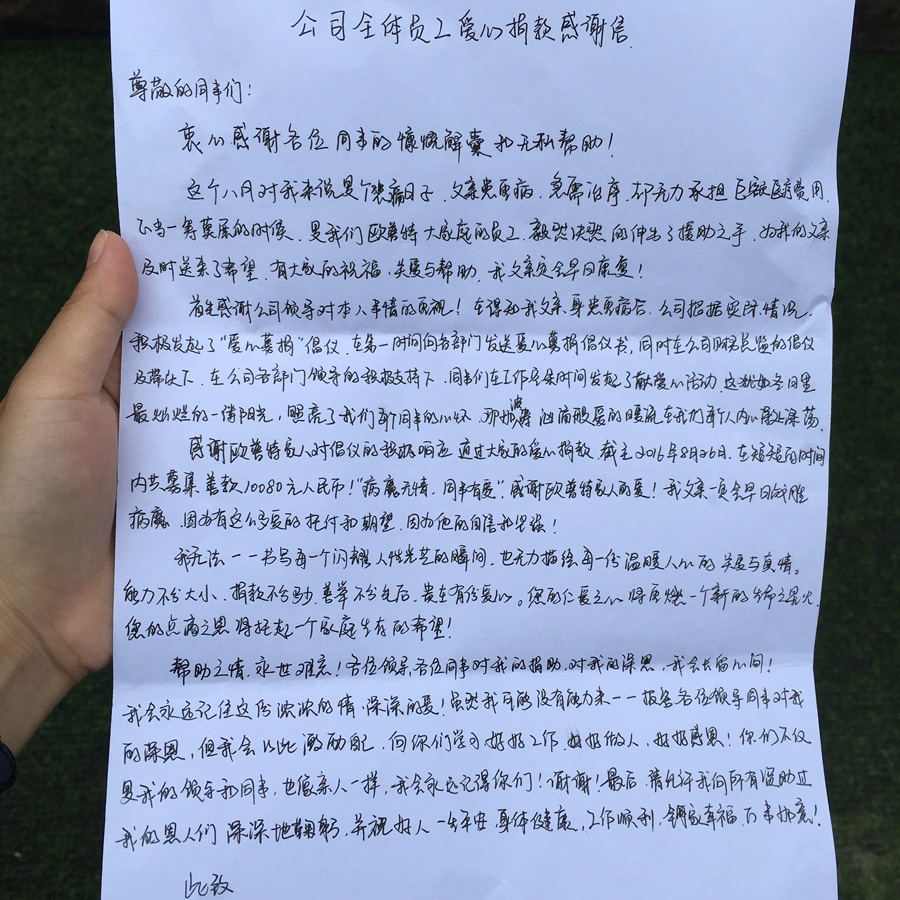 公司全体员工爱心捐款感谢信
尊敬的同事们：
衷心感谢各位同事的慷慨解囊和无私帮助！
这个八月对我来说是个悲痛日子，父亲患重病，急需治疗，却无力承担巨额医疗费用，
正当一筹莫展的时候，是我们欧普特大家庭的员工，毅然决然的伸出了援助之手，为我的父亲
及时送来了希望，有大家的祝福，关爱与帮助，我父亲定会早日康复！
首先感谢公司领导对本人事情的重视！在得知我父亲身患重病后，公司根据实际情况，
积极发起了“爱心募捐”倡仪，在第一时间向各部门发送爱心募捐倡仪书，同时在公司财务总监的倡仪
及带领下，在公司各部门领导的积极支持下，同事们在工作之余时间发起了献爱心活动，这犹如冬日里
最灿烂的一缕阳光，照亮了我们每个同事的心怀，那波涛汹涌般爱的暖流在我们每个人内心深处涤荡
感谢欧普特家人对倡仪的积极响应，通过大家的爱心捐款，截止2016年8月26日，在短短的时间
内共募集善款10080元人民币！“病魔无情，同事有爱”，感谢欧普特家人的爱！我父亲一定会早日战胜
病魔，因为有这么多爱的托付和期望，因为他的自信和坚强！
我无法一一书写每一个闪耀人性光芒的瞬间，也无力描绘每一份温暖人心的关爱与真情。
能力不分大小，捐款不分多少，善举不分先后，贵在有份爱心。您的仁爱之心将重燃一个新的生命之星火，
您的点滴之恩将托起一个家庭生存的希望！
帮助之情，永世难忘！各位领导，各位同事对我的捐助，对我的深恩，我会长留心间！
我会永远记住这份浓浓的情，深深的爱！虽然我可能没有能力来一一报答各位领导同事对我
的深恩，但我会以此激励自己，向你们学习，好好工作，好好做人，好好感恩！你们不仅
是我的领导和同事，也像亲人一样，我会永远记得你们！谢谢！最后，请允许我向所有资助过
我的恩人们深深地鞠躬，并祝好人一生平安，身体健康，工作顺利，阖家幸福，万事如意！
此致